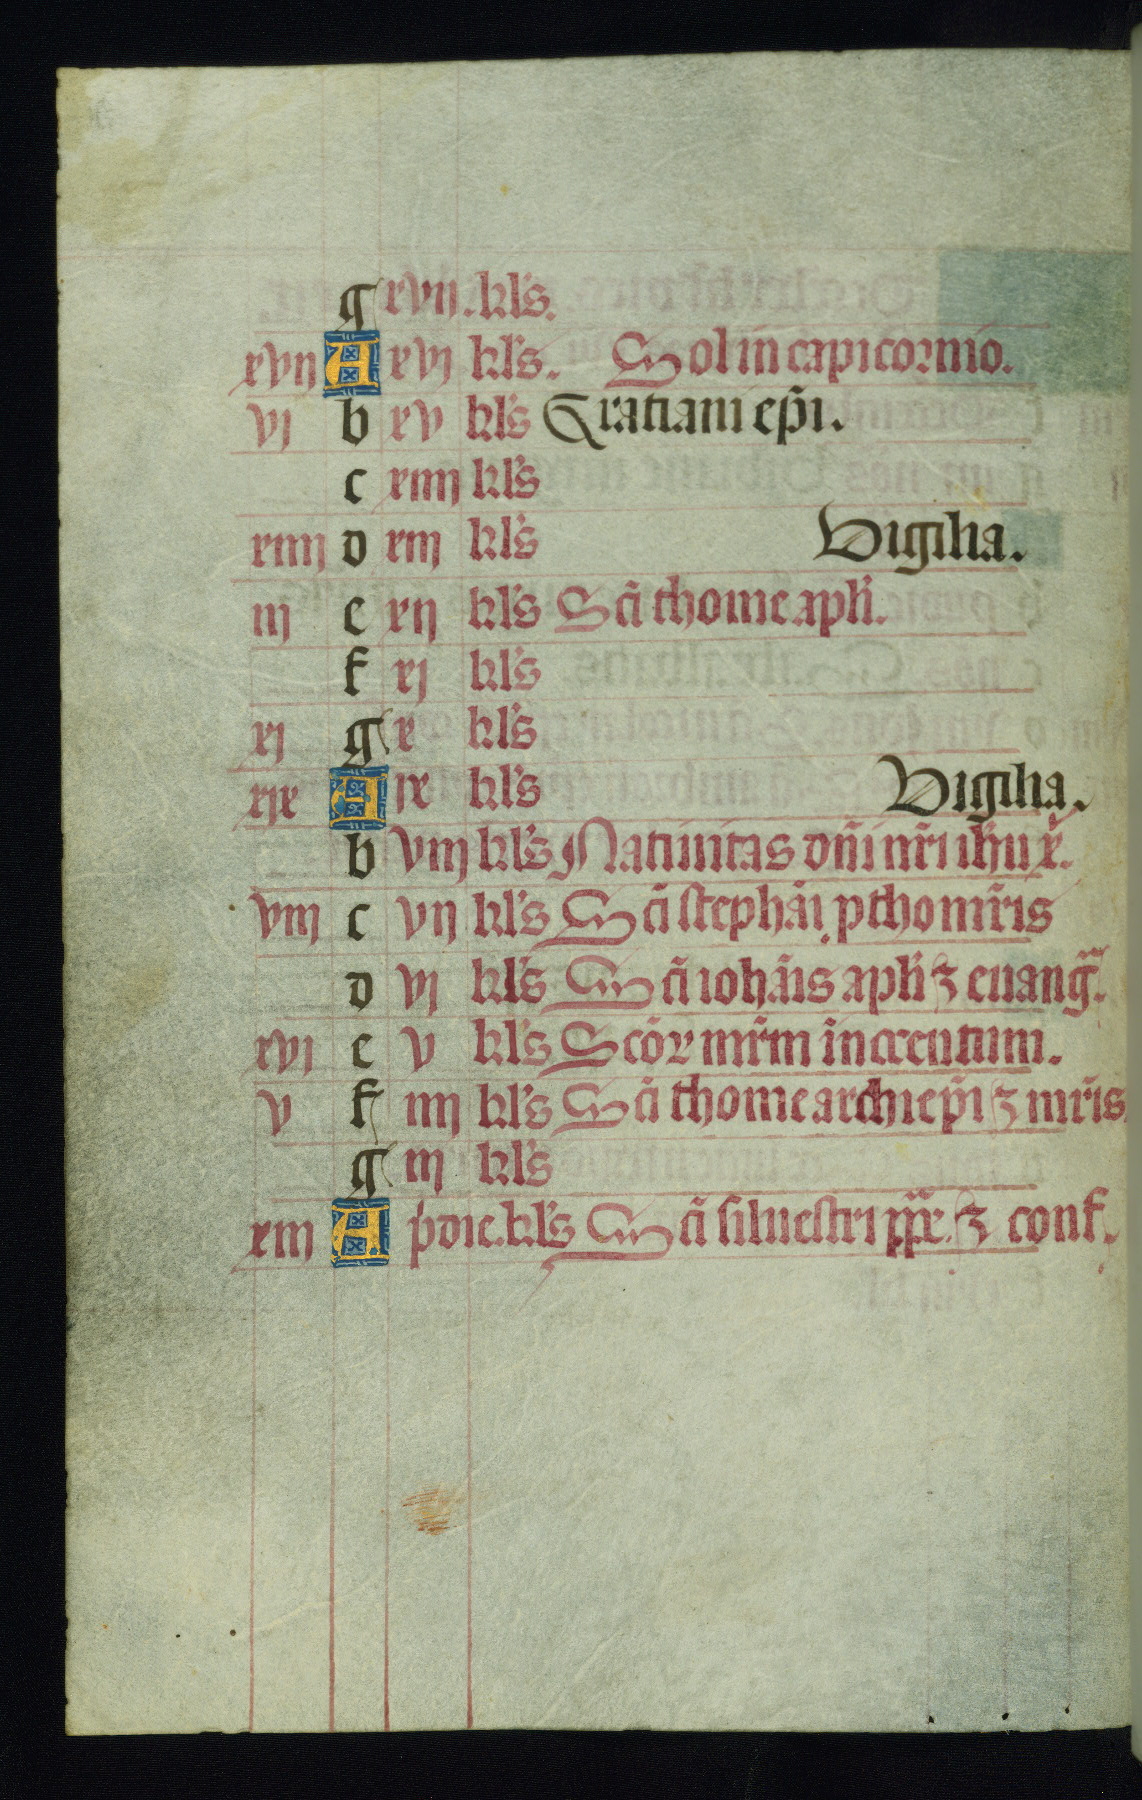 g xvij. kl's.
xvij A xvj kl's. Sol in capicornio.
vj b xv kl's Gratiani ep̃i.
c xiiij kl's
xiiij d xiij kl's Vigilia.
iij e xij kl's Sc̃i thome apl̃i.
f xj kl's
xj g x kl's
xix A ix kl's Vigilia.
b viij kl's Natiuitas dñi nr̃i ih̃u x̃.
viij c vij kl's Sc̃i stephãi pthomr̃is
d vj kl's Sc̃i iohãis apl̃i ⁊ euang̃.
xvj e v kl's Scõꝝ mr̃m ĩnocentum.
v f iiij kl's Sc̃i thome archiep̃i ⁊ mr̃is.
g iij kl's
xiij A p̓die. kl's Sc̃i siluestri pp̃e. ⁊ conf.